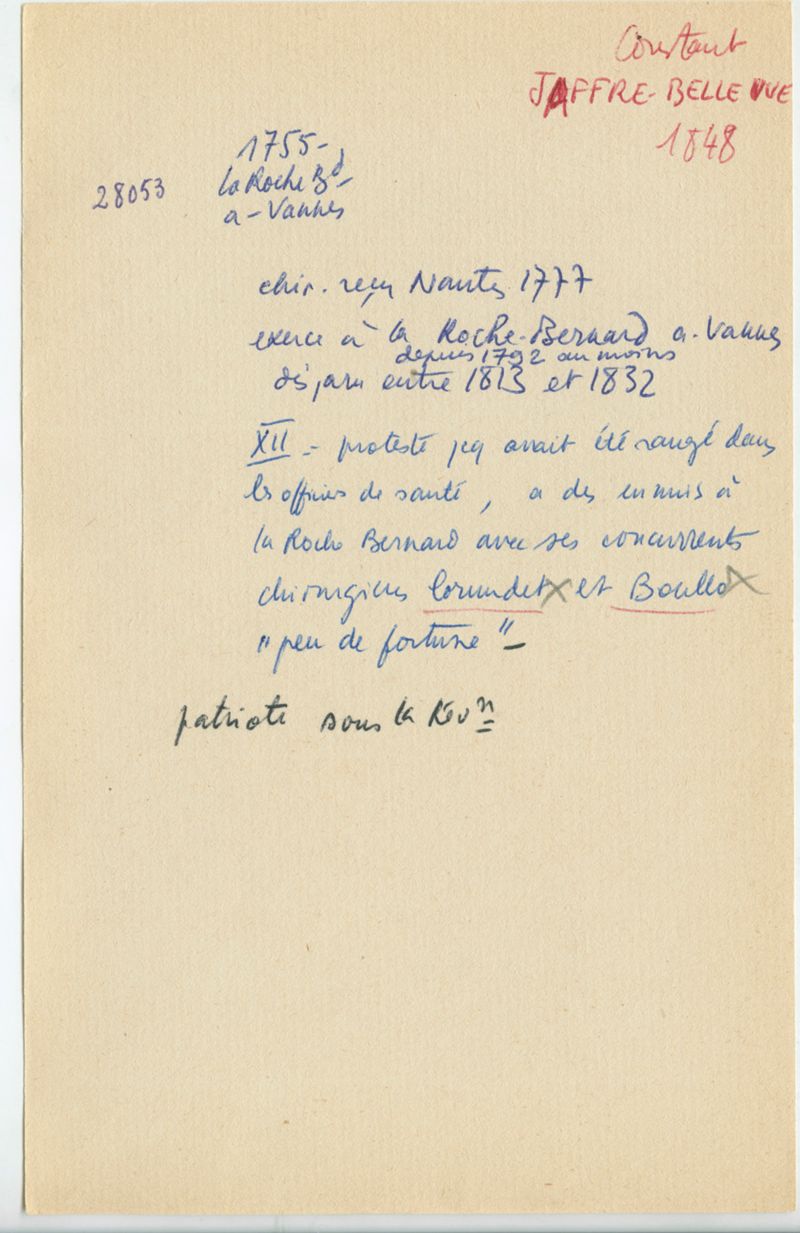 Constant
JAFFRE-BELLEVUE
1848
1755-
28053 la Roche Bd-
a-Vannes
chir. reçu Nantes 1777
exerce à la Roche-Bernard a-Vannes
depuis 1792 au moins
disparu entre 1813 et 1832
XII - proteste pcq avait été rangé dans
les officiers de santé, a des ennuis à
la Roche Bernard avec ses concurrents
chirurgiens Cormudet et Boullo
"peu de fortune"-
patriote sous la Révn